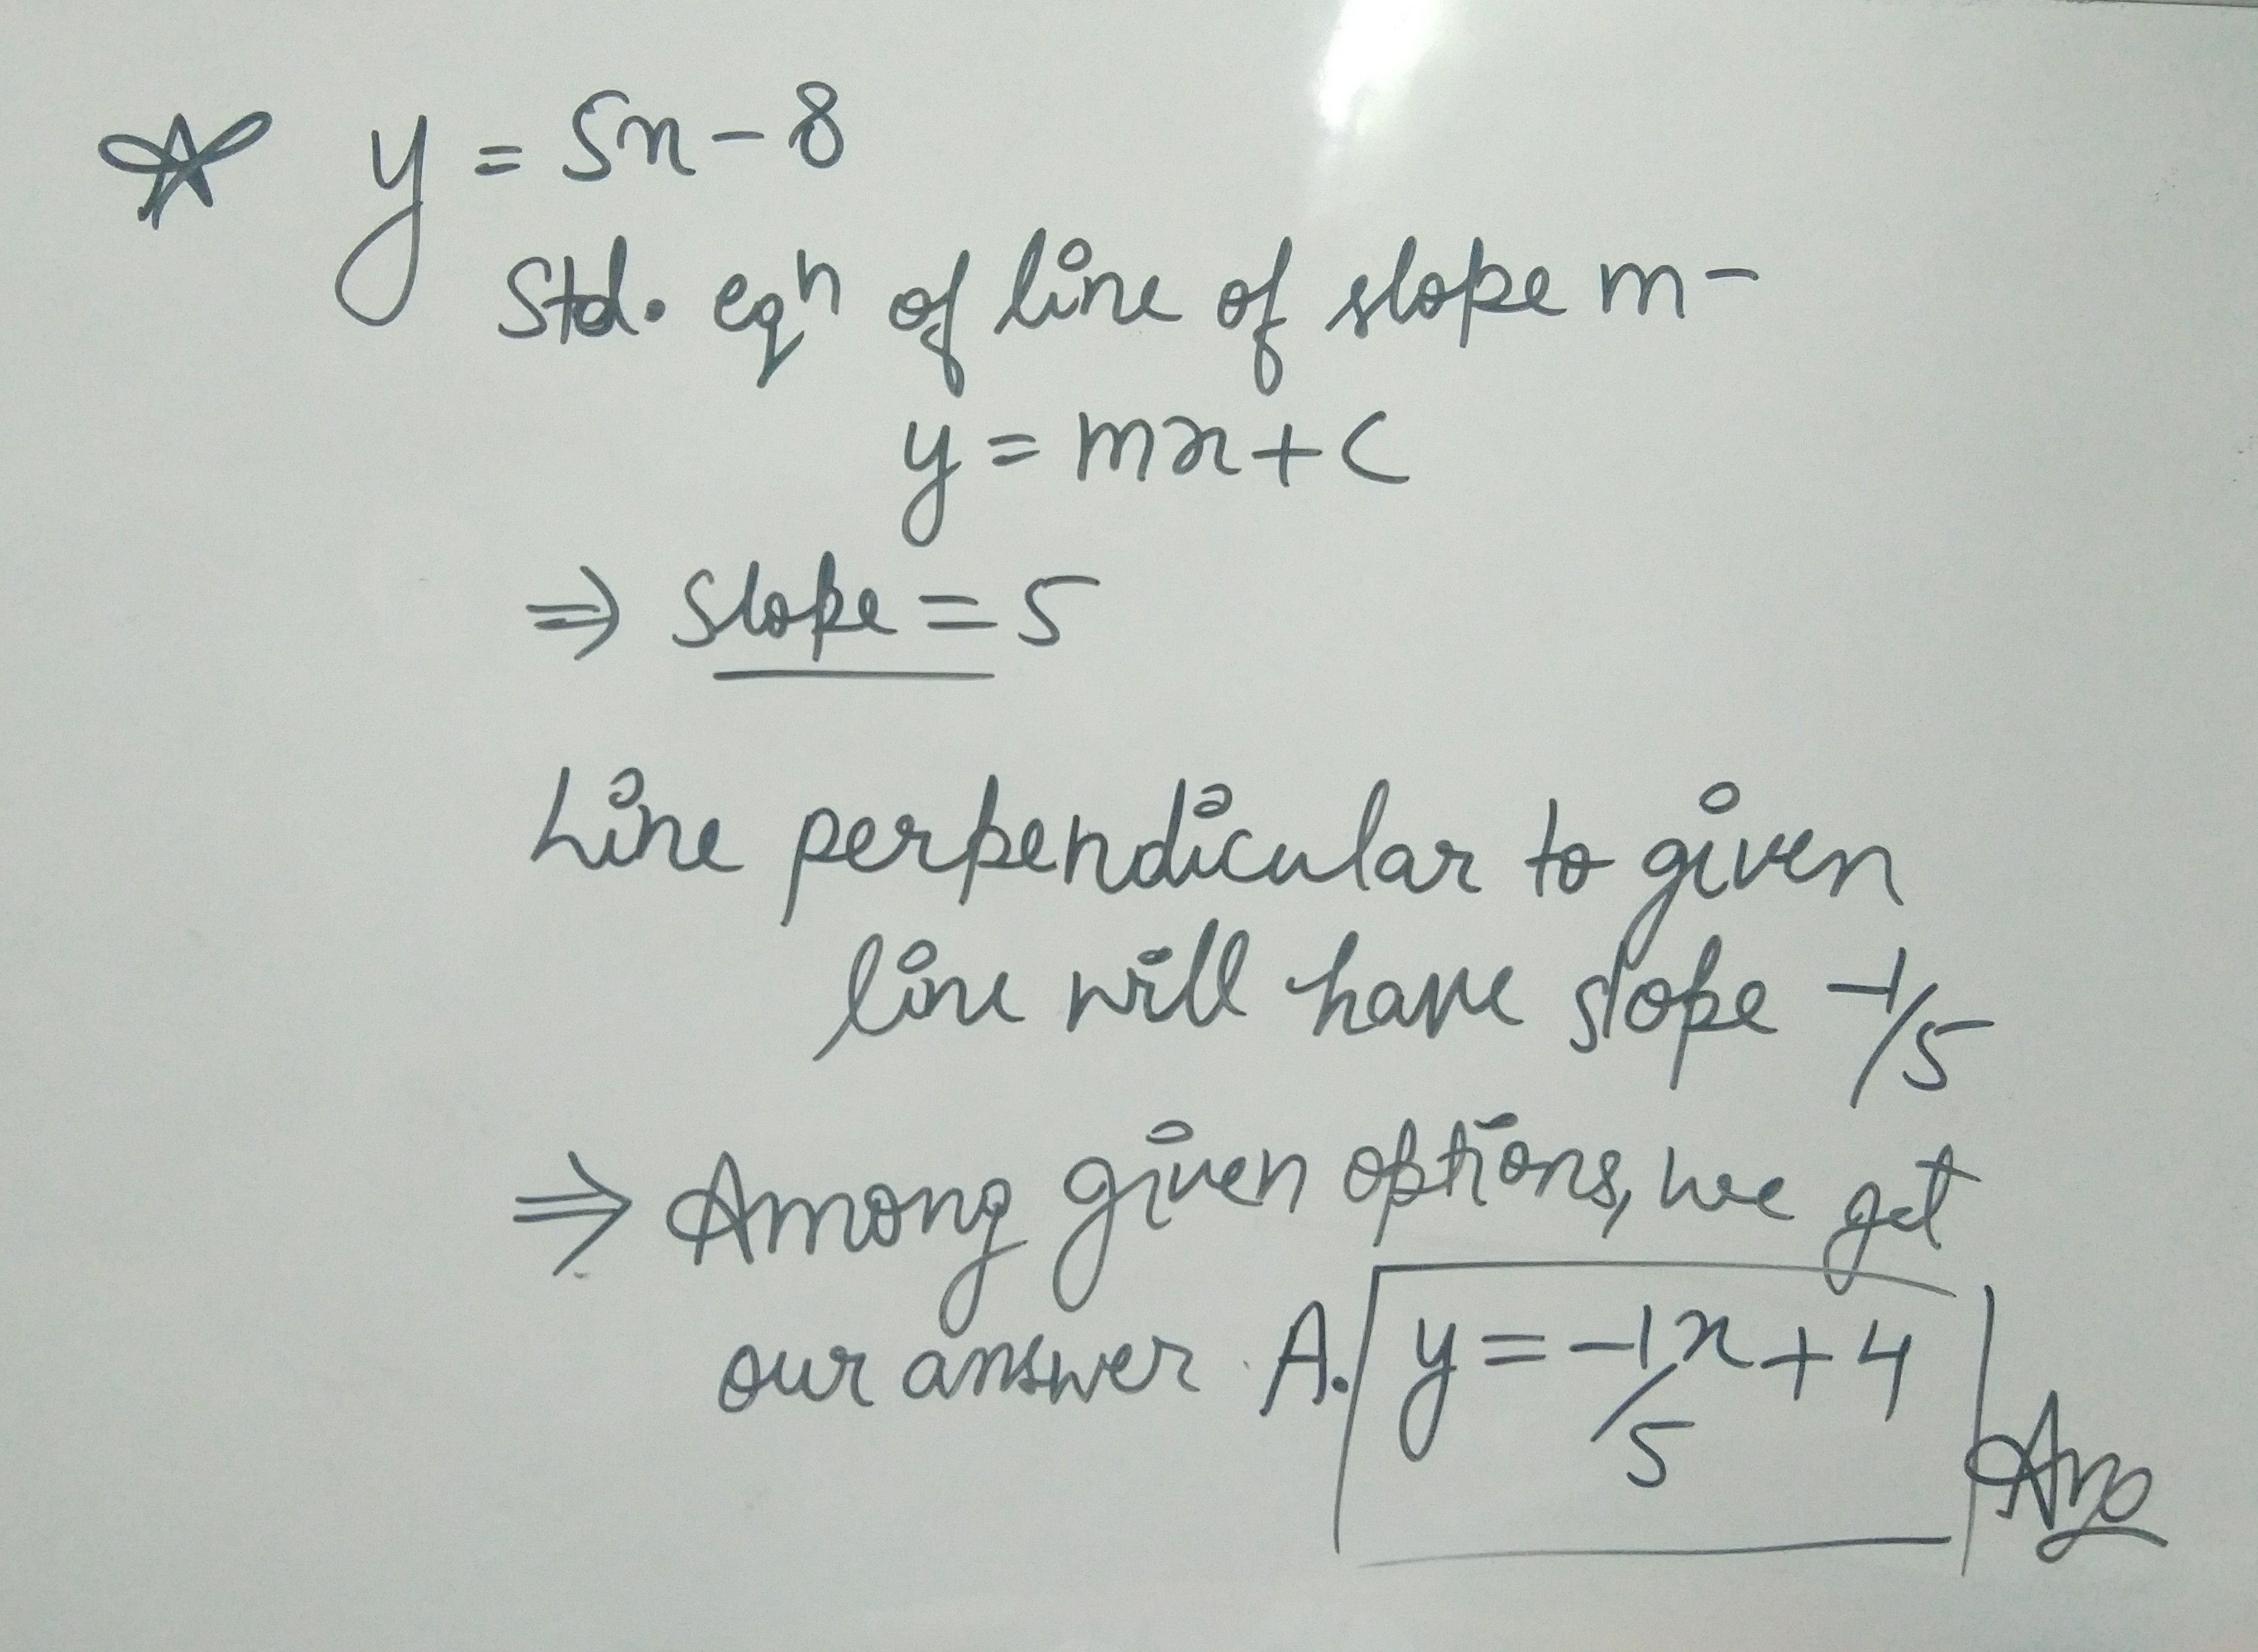 y = 5x - 8
Std. eqⁿ of line of slope m -
y = mx + c
⇒ Slope = 5
Line perpendicular to given
line will have slope -1/5
⇒ Among given options, we get
our answer A. y = -1/5 x + 4 Ans